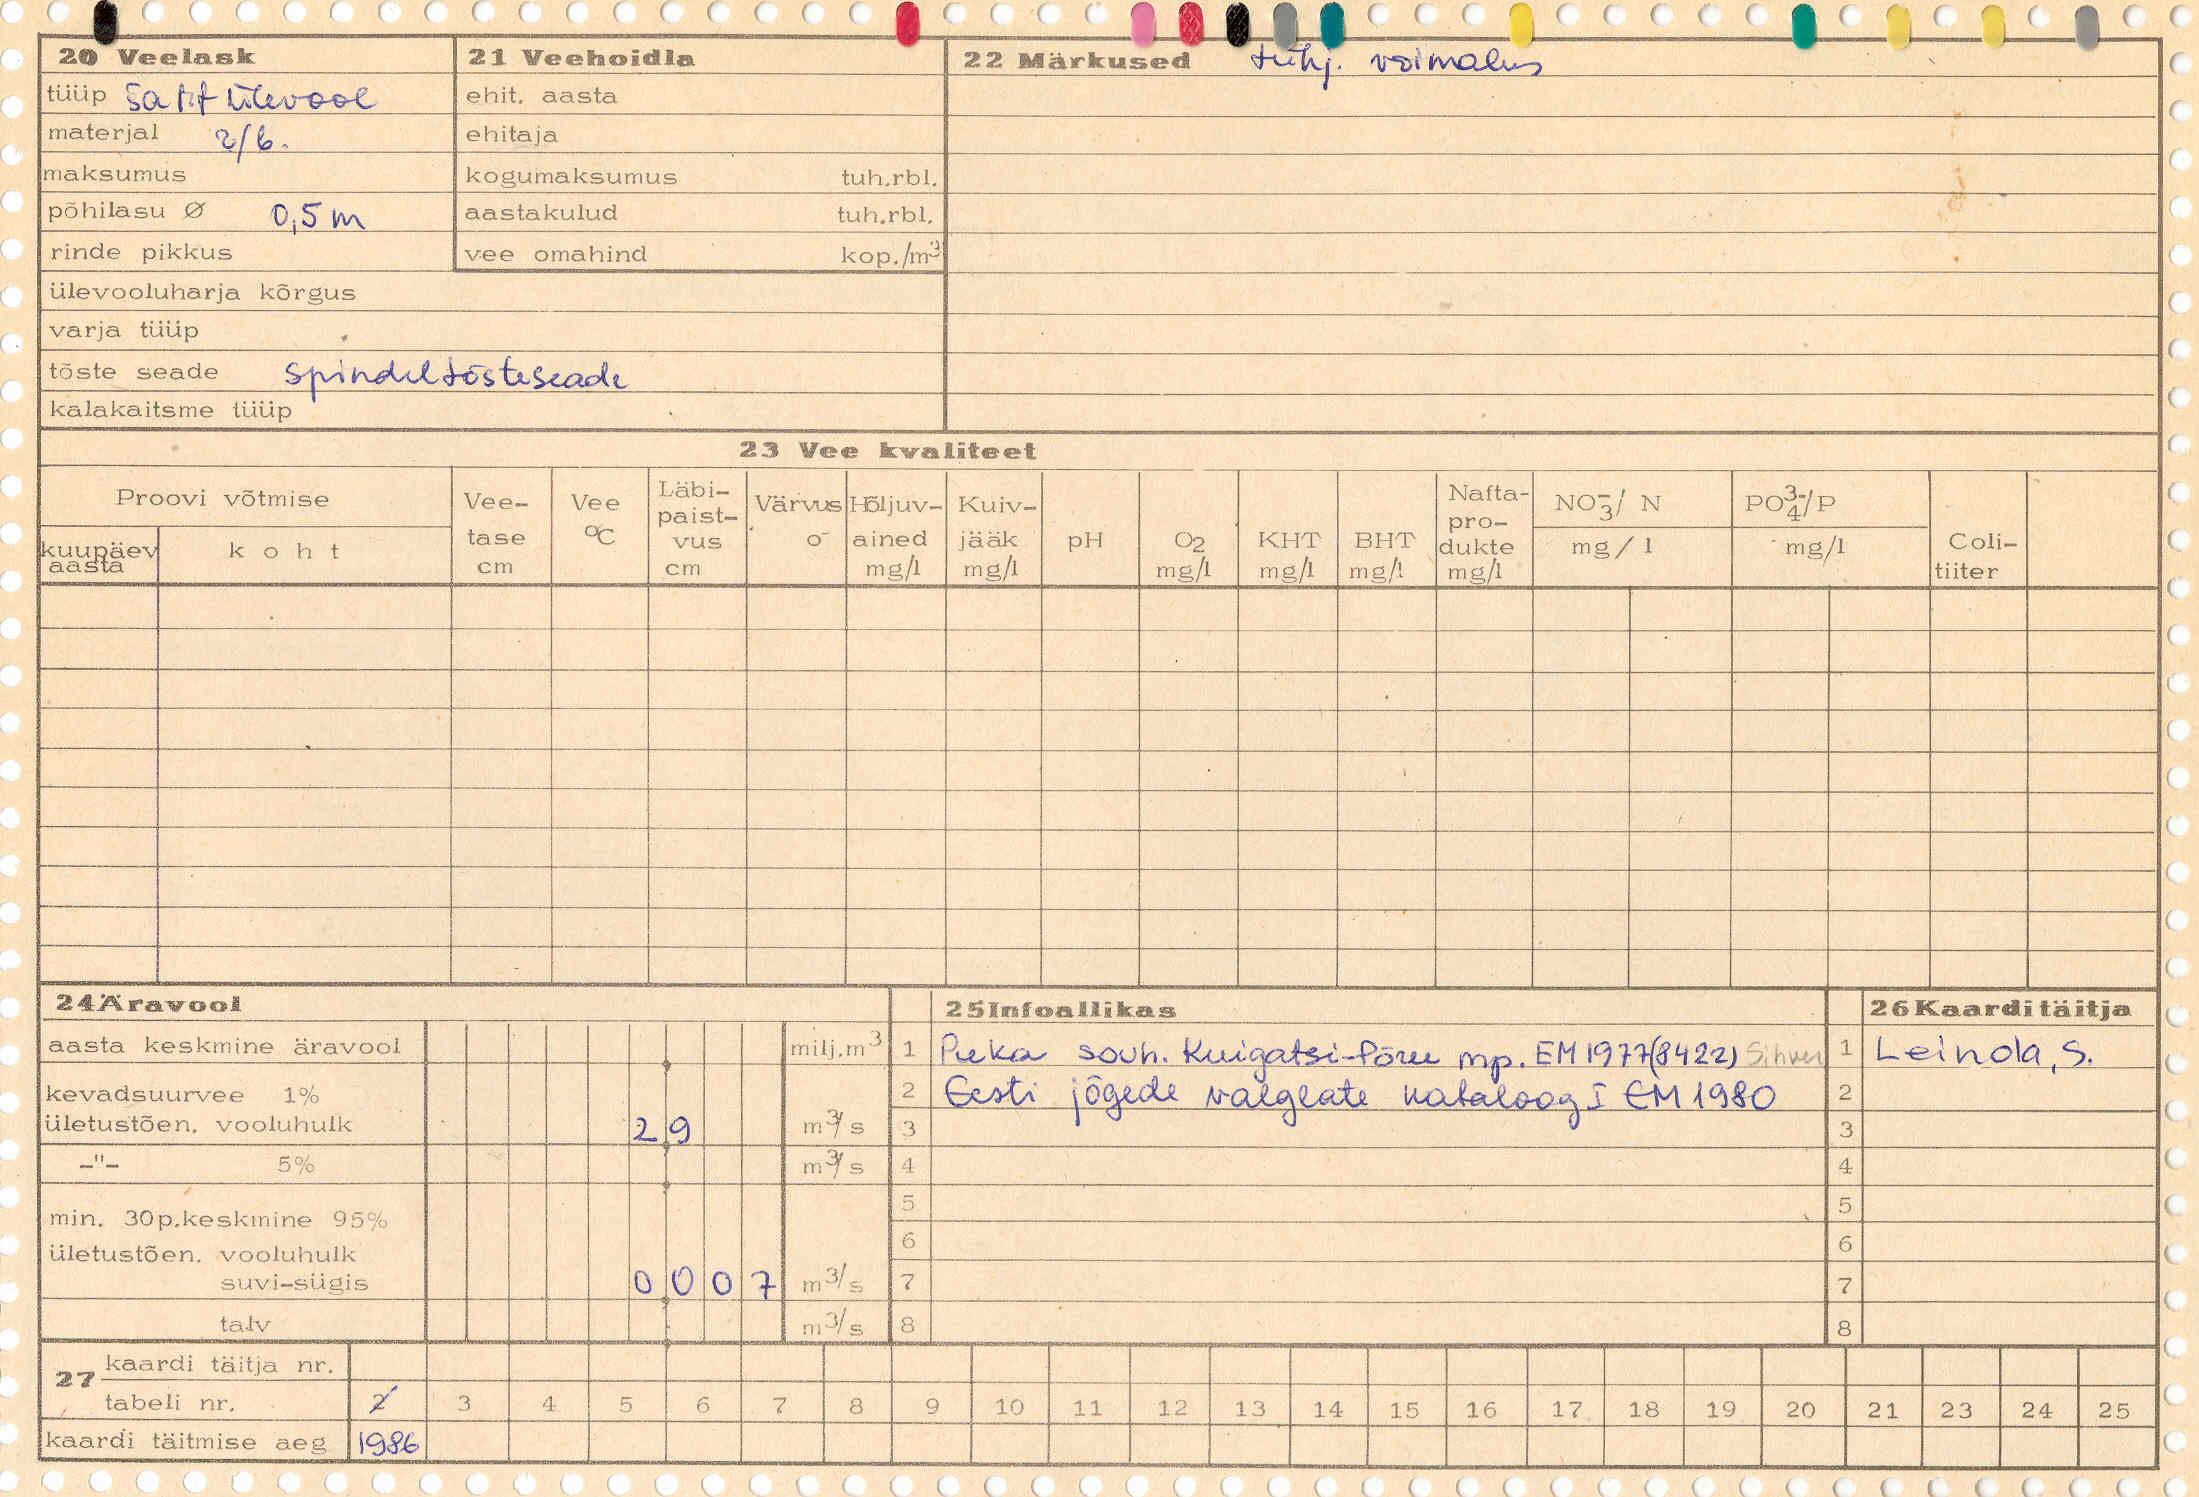 20 Veelask
tüüp šaht ülevool
materjal r/b.
maksumus
põhilasu Ø 0,5 m
rinde pikkus
ülevooluharja kõrgus
varja tüüp
tõste seade spindeltõsteseade
kalakaitsme tüüp
21 Veehoidla
ehit. aasta
ehitaja
kogumaksumus tuh.rbl.
aastakulud tuh.rbl.
vee omahind kop./m³
22 Märkused tühj. voimalus
23 Vee kvaliteet
Proovi võtmise
kuupäev aasta
koht
Vee-
tase
cm
Vee
°C
Läbi-
paist-
vus
cm
Värvus
o
Hõljuv-
ained
mg/l
Kuiv-
jääk
mg/l
pH
O₂
mg/l
KHT
mg/l
BHT
mg/l
Nafta-
pro-
dukte
mg/l
NO₃⁻/ N
mg/l
PO₄³⁻/P
mg/l
Coli-
tiiter
24 Äravool
aasta keskmine äravool milj.m³
kevadsuurvee 1%
ületustõen. vooluhulk 2 9 m³/s
-"- 5% m³/s
min. 30p.keskmine 95%
ületustõen. vooluhulk
suvi-sügis 0 0 0 7 m³/s
talv m³/s
25 Infoallikas
1 Puka sovh. Kuigatsi-Põru mp. EM 1977(8422) Sihver
2 Eesti jõgede valglate kataloog I EM 1980
3
4
5
6
7
8
26 Kaardi täitja
1 Leinola, S.
2
3
4
5
6
7
8
27 kaardi täitja nr.
tabeli nr. 2 3 4 5 6 7 8 9 10 11 12 13 14 15 16 17 18 19 20 21 23 24 25
kaardi täitmise aeg 1986